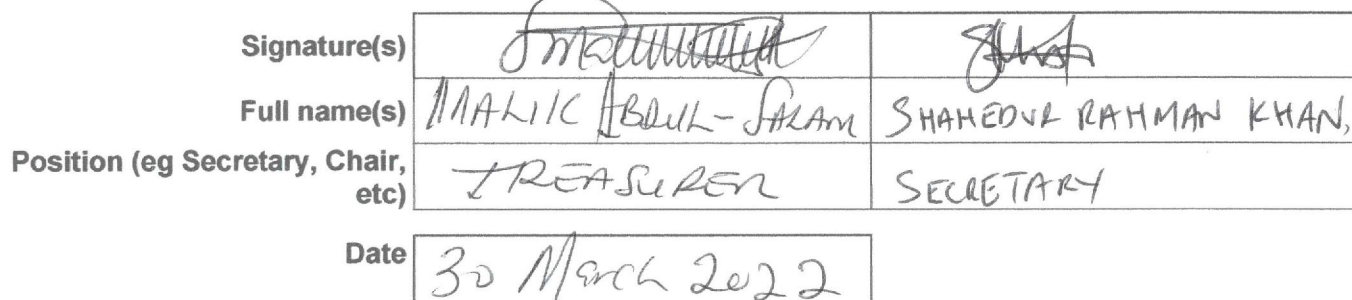 Signature(s)
Full name(s) MALIK ABDUL-SALAM SHAHEDUR RAHMAN KHAN,
Position (eg Secretary, Chair,
etc) TREASURER SECRETARY
Date 30 March 2022